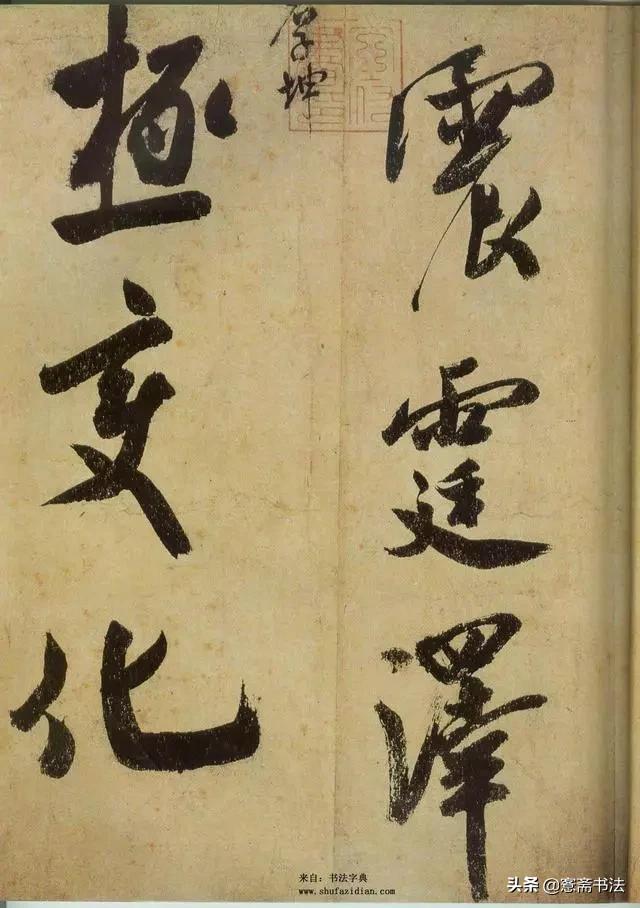 震霆澤
厚坤
極變化
来自：书法字典
www.shufazidian.com
头条 @愙斋书法